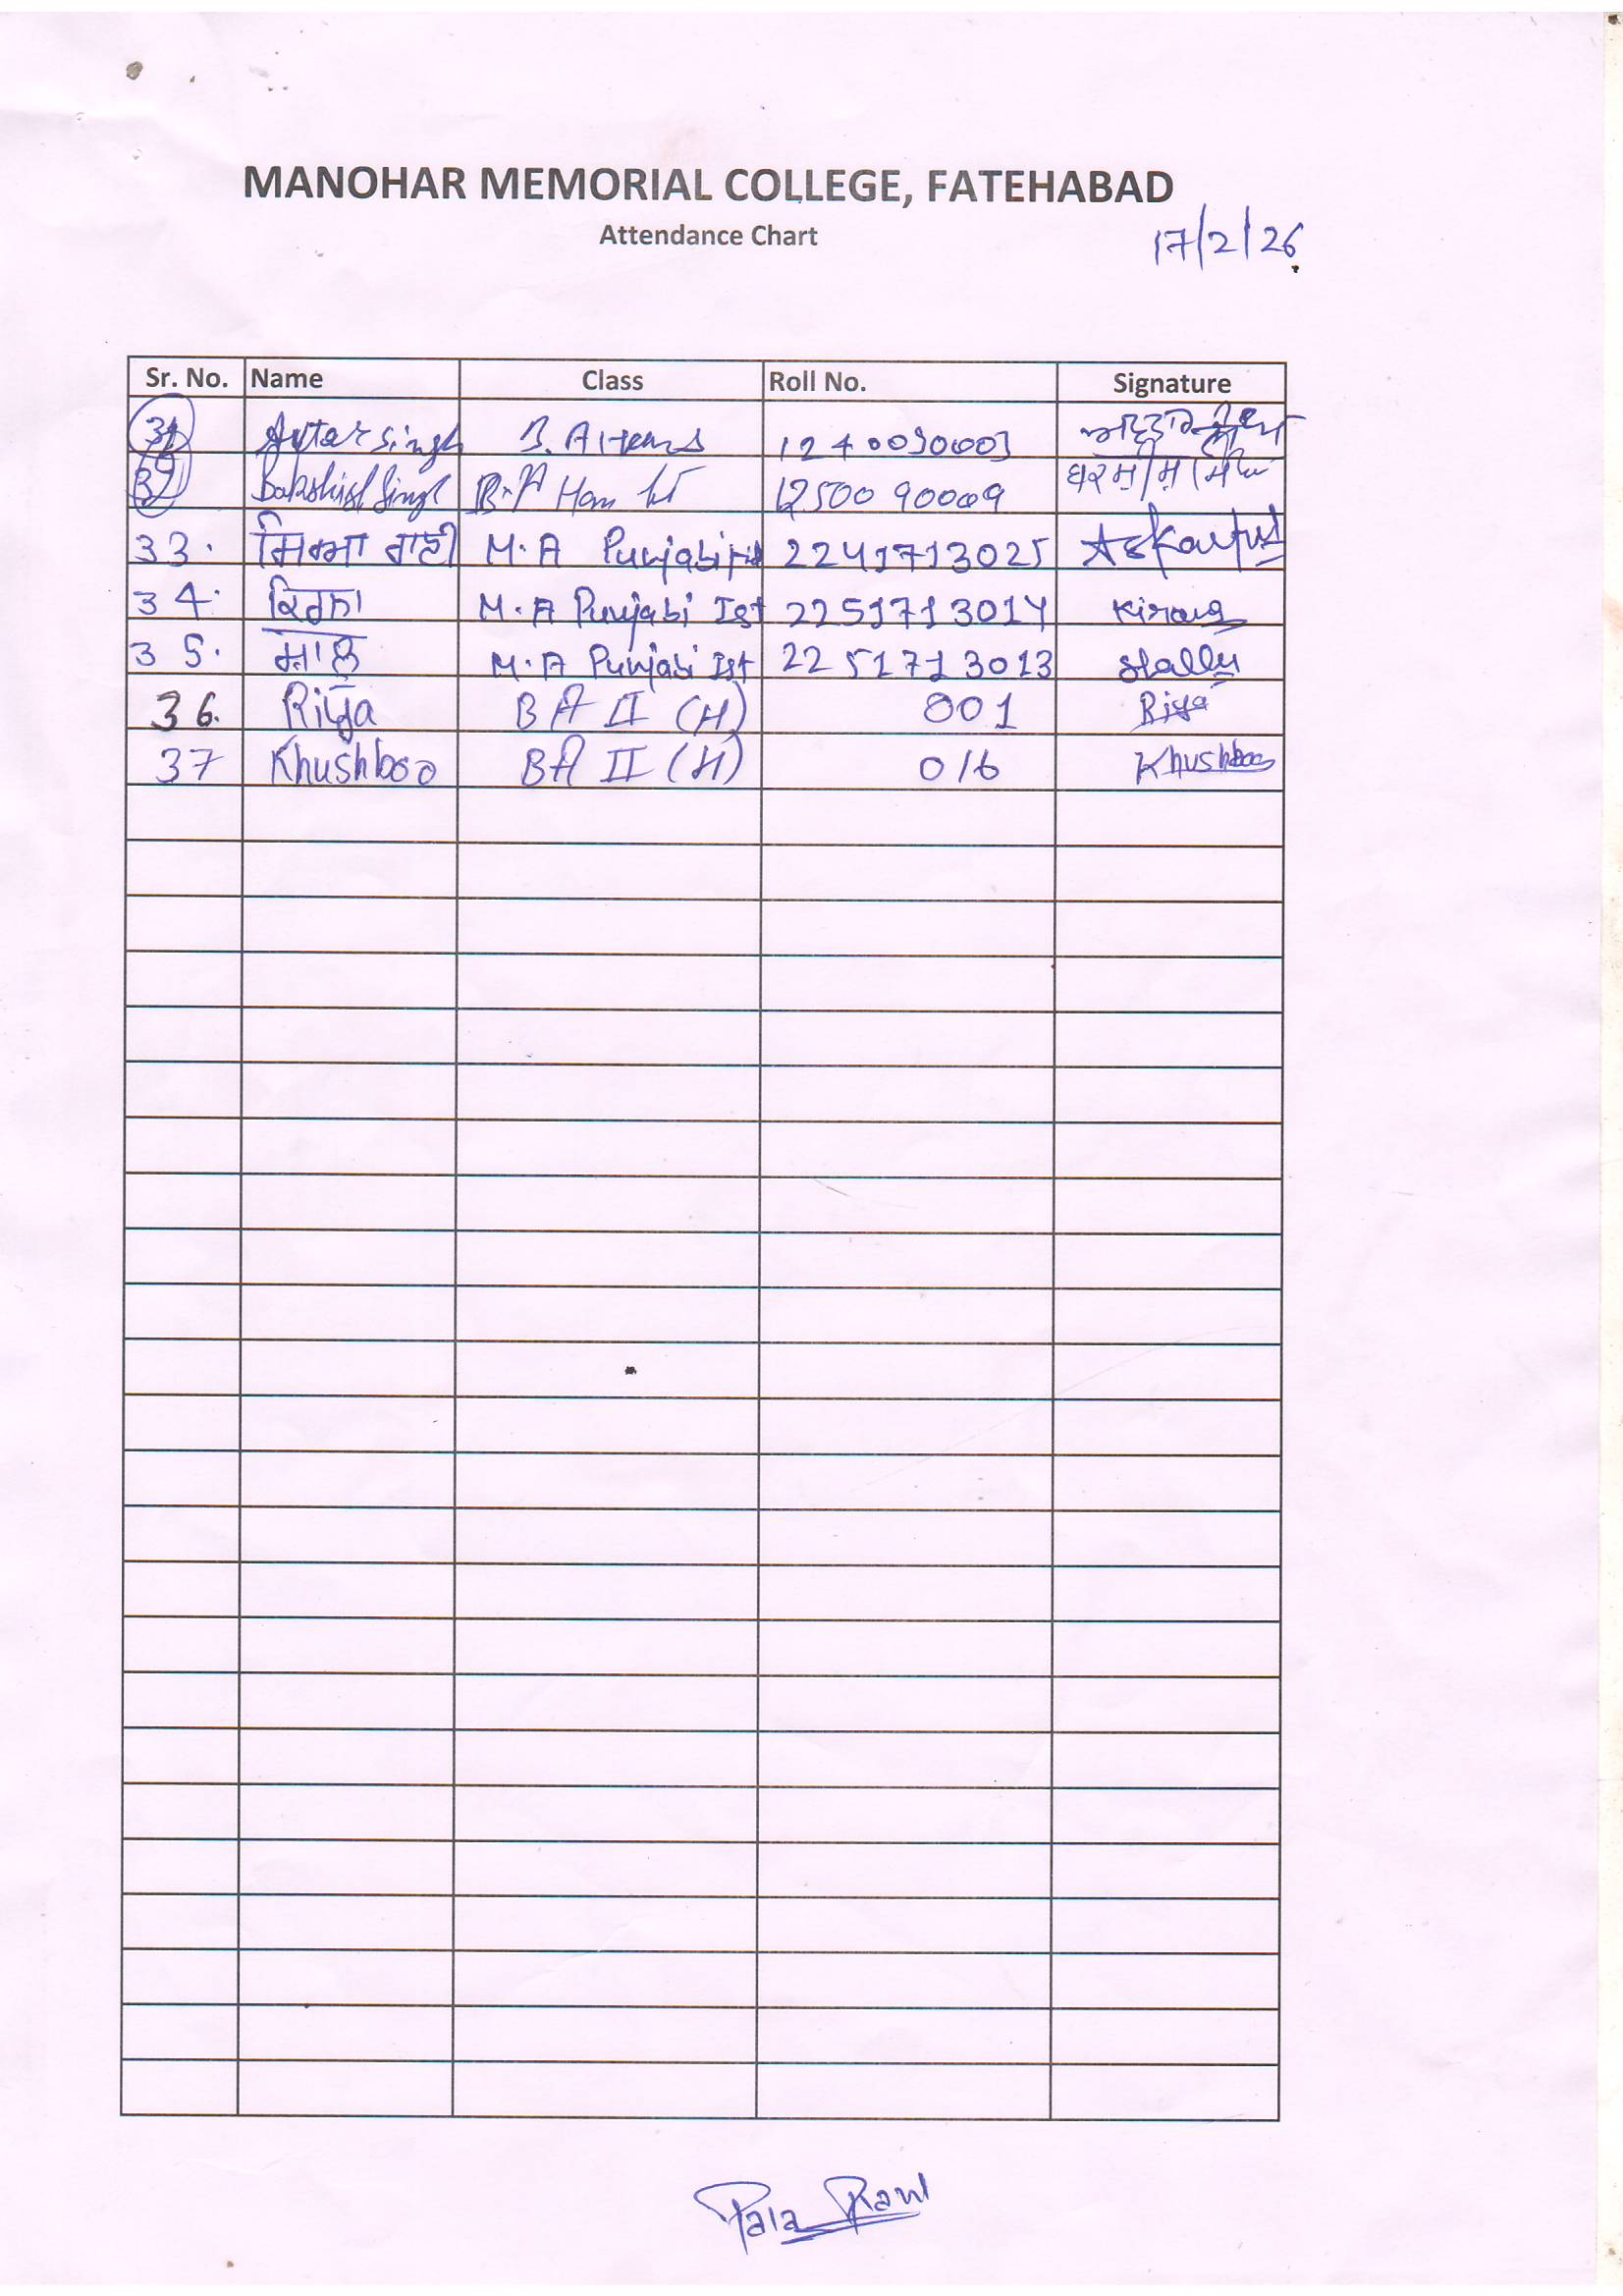 MANOHAR MEMORIAL COLLEGE, FATEHABAD
Attendance Chart
17/2/26
Sr. No. Name Class Roll No. Signature
31 Avtar singh B. A Hons 1240090003
32 Bakshish Singh B.A Hon Ist 12500 90009
33. ਸਿਮਮਾ ਰਾਣੀ M.A Punjabi 2241713025
34. ਕਿਰਨਾ M.A Punjabi Ist 2251713014 Kirang
35. ਸ਼ਾਲੂ M.A Punjabi Ist 2251713013 Shallu
36. Riya BA II (H) 001 Riya
37 Khushboo BA II (H) 016 Khushboo
Pala Ram